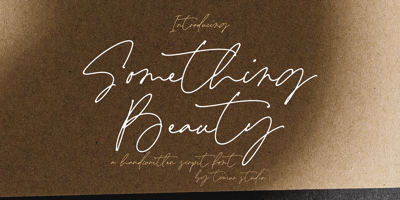 Introducing
Something
Beauty
a handwritten script font
by tomin studio